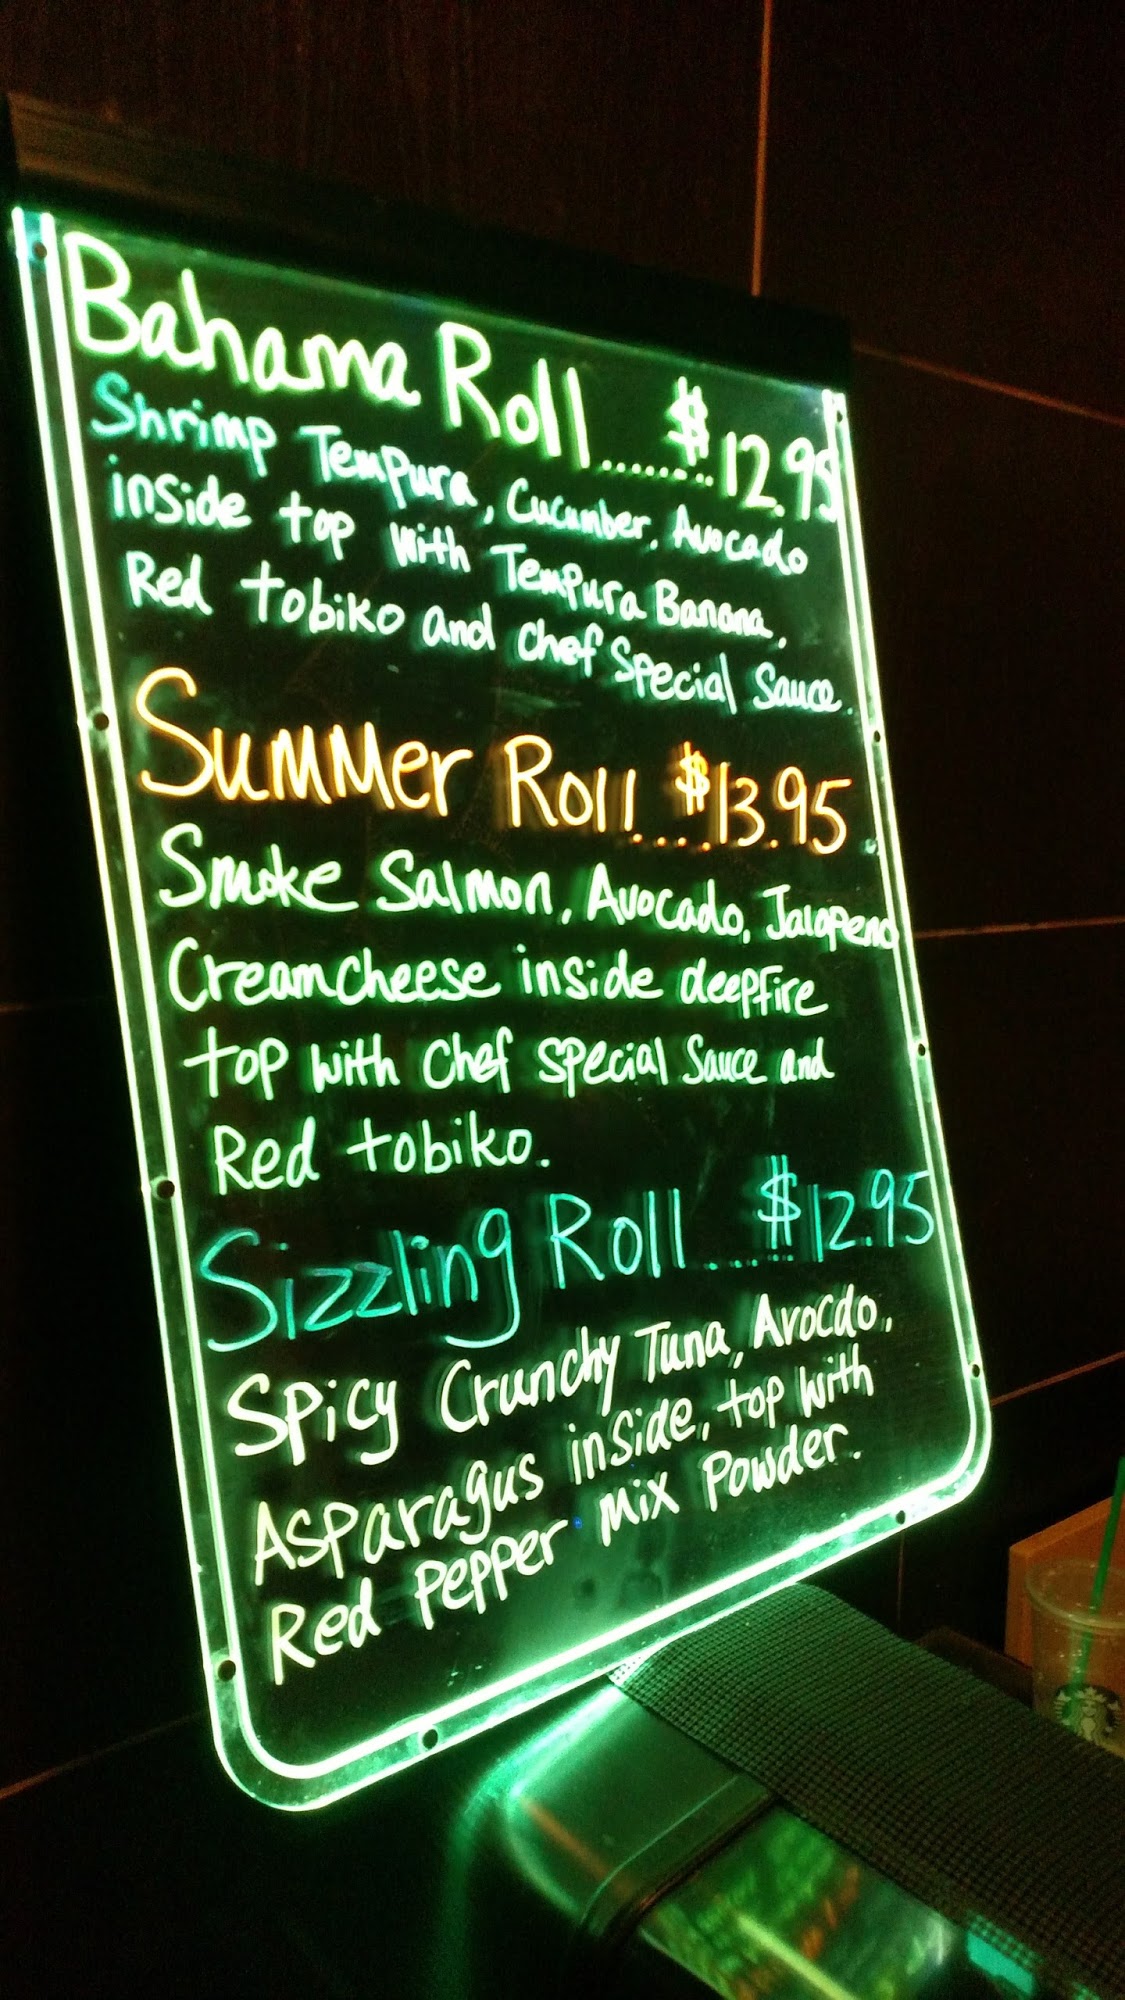 Bahama Roll ....... $12.95
Shrimp Tempura, Cucumber, Avocado
inside top with Tempura Banana,
Red tobiko and chef special sauce.
Summer Roll .... $13.95
Smoke Salmon, Avocado, Jalapeno
Creamcheese inside deepfire
top with chef special sauce and
Red tobiko.
Sizzling Roll ...... $12.95
Spicy Crunchy Tuna, Avocdo,
Asparagus inside, top with
Red pepper mix powder.